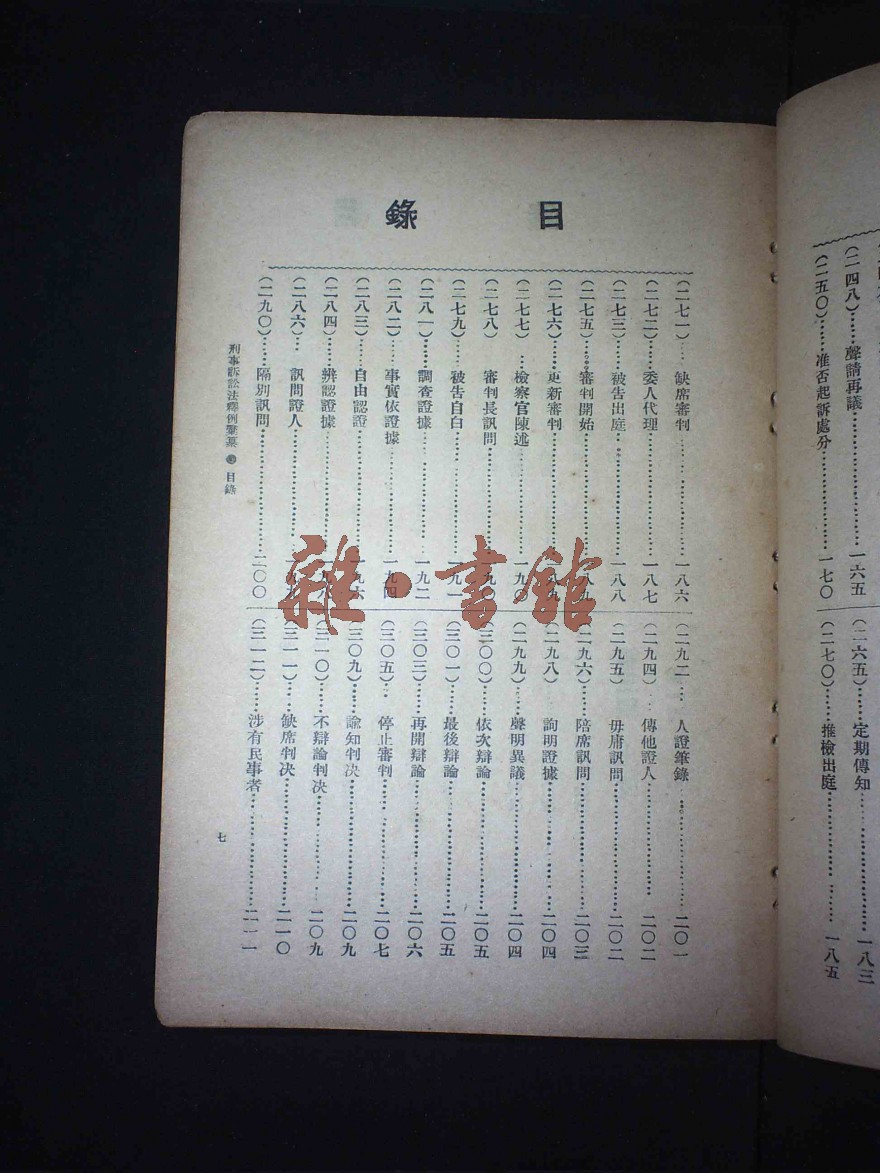 (二四八)……聲請再議……一六五
(二五〇)……准否起訴處分……一七〇
(二六五)……定期傳知……一八三
(二七〇)……推檢出庭……一八五
目錄
(二七一)……缺席審判……一八六
(二七二)……委人代理……一八七
(二七三)……被告出庭……一八八
(二七五)……審判開始……一八九
(二七六)……更新審判……一八九
(二七七)……檢察官陳述……一九〇
(二七八)審判長訊問……一九〇
(二七九)……被告自白……一九一
(二八一)……調查證據……一九二
(二八二)……事實依證據……一九四
(二八三)……自由認證……一九六
(二八四)……辨認證據
(二八六)……訊問證人
(二九〇)……隔別訊問……二〇〇
(二九二……人證筆錄……二〇一
(二九四)……傳他證人……二〇二
(二九五)毋庸訊問……二〇二
(二九六)……陪席訊問……二〇三
(二九八)……詢明證據……二〇四
(二九九)……聲明異議……二〇四
(三〇〇)……依次辯論……二〇五
(三〇一)……最後辯論……二〇五
(三〇三)……再開辯論……二〇六
(三〇五)……停止審判……二〇七
(三〇九)……諭知判決……二〇九
(三一〇)……不辯論判决……二〇九
(三一一)……缺席判决……二一〇
(三一二)……涉有民事者……二一一
刑事訴訟法釋例彙纂 ● 目錄
七
雜·書館